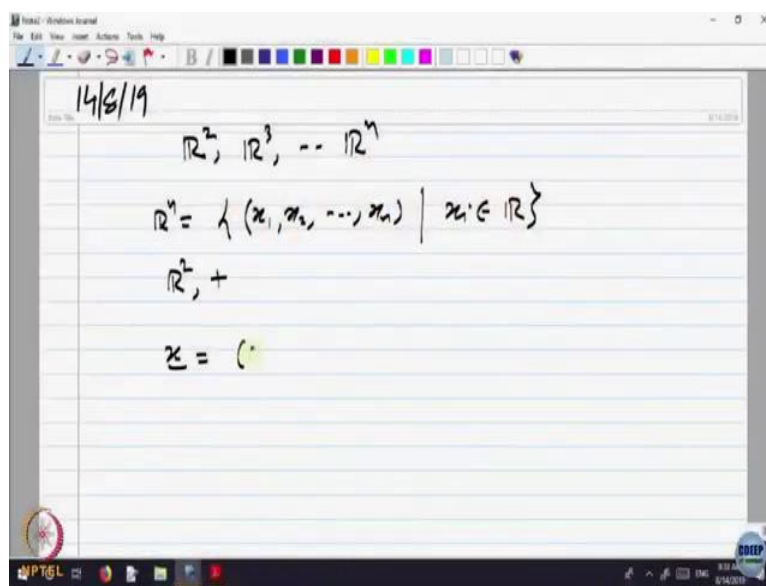 Note2 - Windows Journal
File Edit View Insert Actions Tools Help
14/8/19
ℝ², ℝ³, -- ℝⁿ
ℝⁿ = { (x₁, x₂, ..., xₙ) | xᵢ ∈ ℝ}
ℝ², +
x̲ = (
NPTEL
CDEEP
ENG
8/14/2019